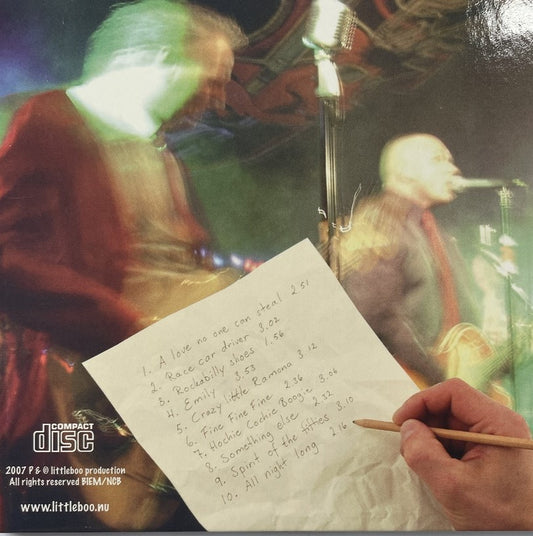 1. A love no one can steal 2.51
2. Race car driver 3.02
3. Rockabilly shoes 1.56
4. Emily 3.53
5. Crazy little Ramona 3.12
6. Fine Fine Fine 2.36
7. Hochie Cochie Boogie 3.06
8. Something else 2.32
9. Spirit of the fifties 3.10
10. All night long 2.16
COMPACT
disc
2007 P & © littleboo production
All rights reserved BIEM/NCB
www.littleboo.nu